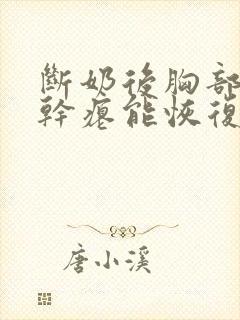 斷奶後胸部
幹癟能恢復
唐小溪